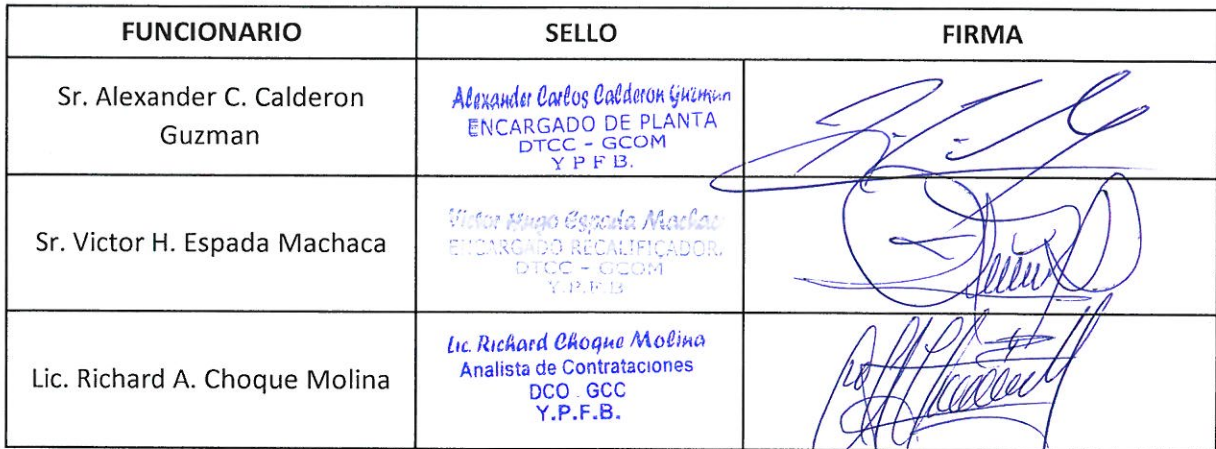 FUNCIONARIO SELLO FIRMA
Sr. Alexander C. Calderon
Guzman
Alexander Carlos Calderon Guzman
ENCARGADO DE PLANTA
DTCC - GCOM
Y P F B.
Sr. Victor H. Espada Machaca
Victor Hugo Espada Machac
ENCARGADO RECALIFICADOR.
DTCC - GCOM
Y.P.F.B
Lic. Richard A. Choque Molina
Lic. Richard Choque Molina
Analista de Contrataciones
DCO . GCC
Y.P.F.B.